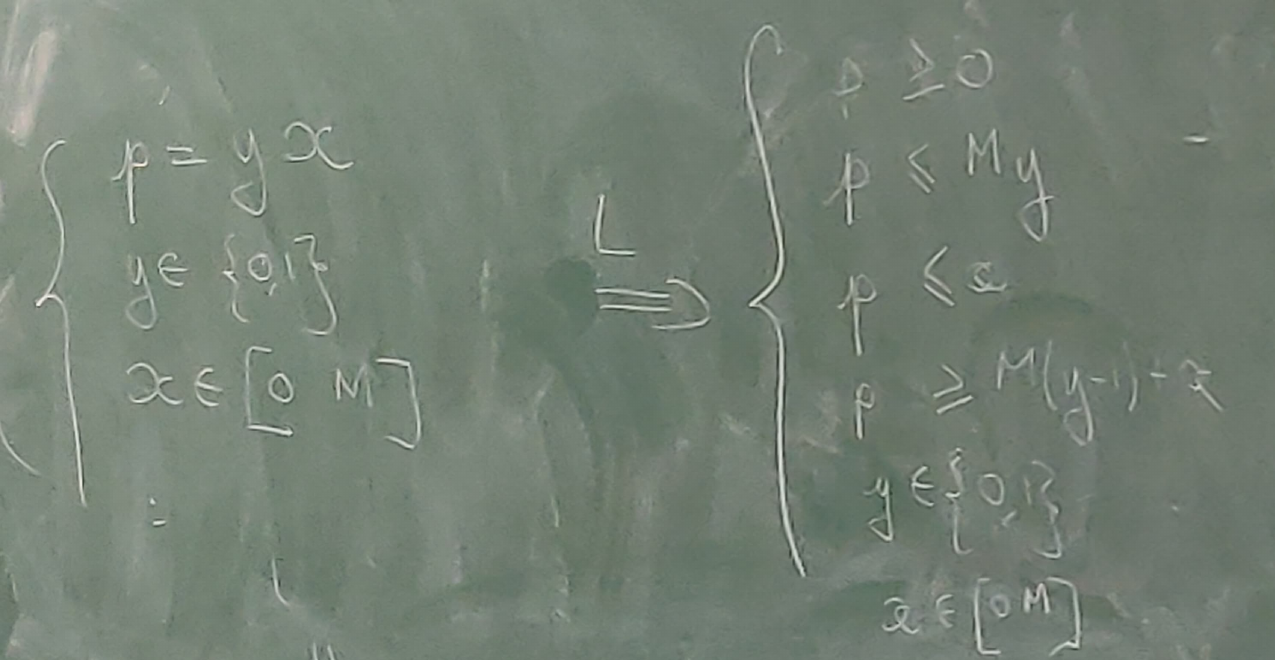 p = y x
y ∈ {0,1}
x ∈ [0 M]
L
⟹
p ≥ 0
p ≤ M y
p ≤ x
p ≥ M(y-1) + x
y ∈ {0,1}
x ∈ [0 M]